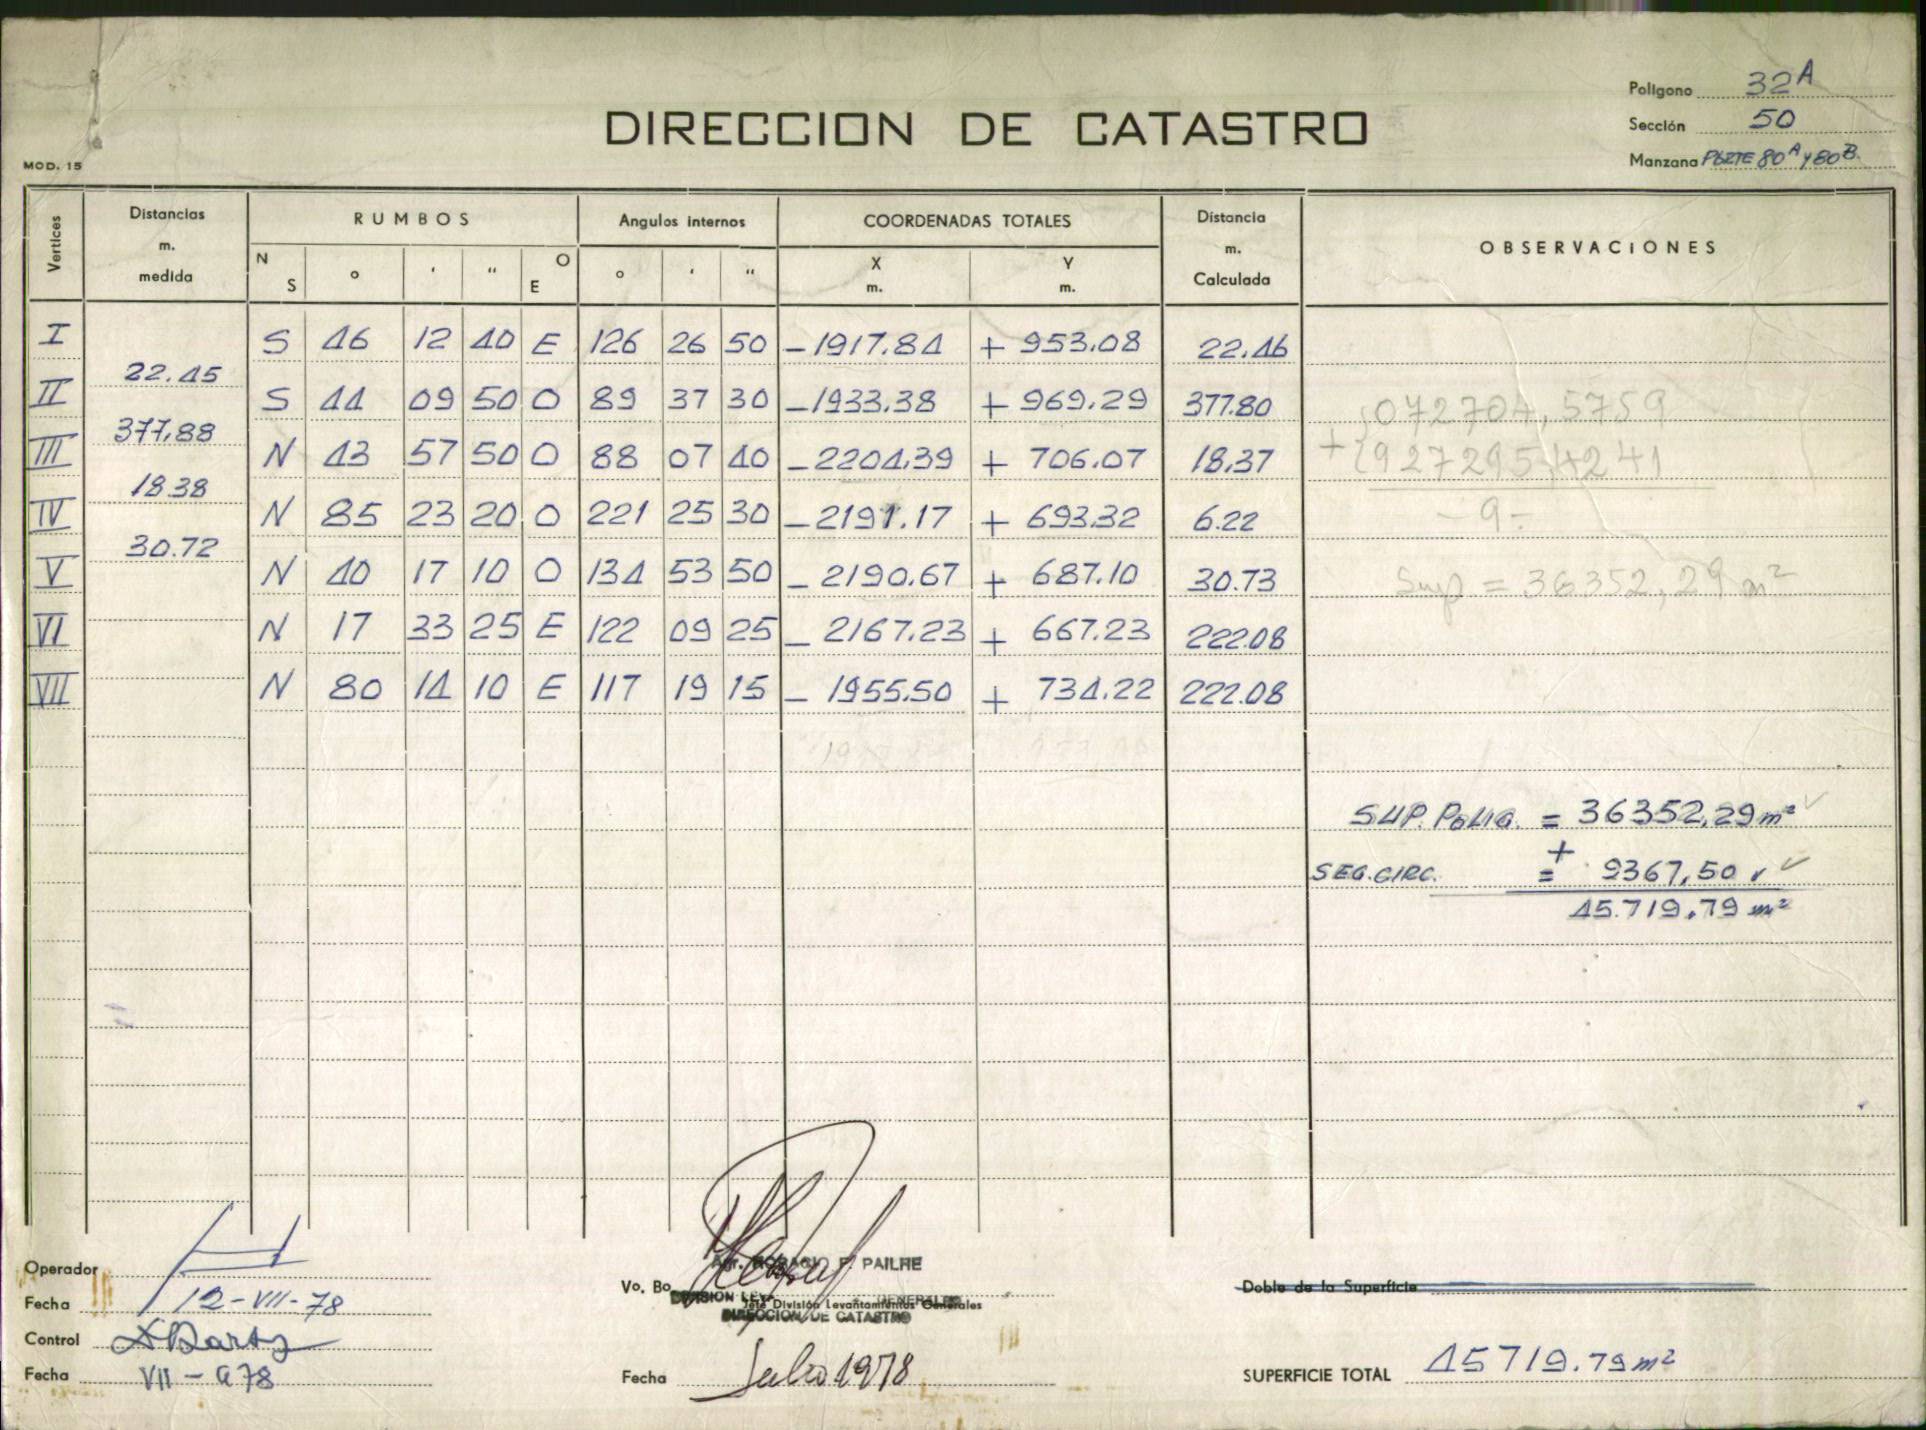 Polígono 32A
DIRECCION DE CATASTRO
Sección 50
MOD. 15
Manzana PARTE 80A y 80B.
Vertices Distancias m. medida RUMBOS N S ° ' " O E Angulos internos ° ' " COORDENADAS TOTALES X m. Y m. Distancia m. Calculada OBSERVACIONES
I S 46 12 40 E 126 26 50 -1917.84 + 953.08 22.46
22.45
II S 44 09 50 O 89 37 30 -1933.38 + 969.29 377.80
377,88
III N 43 57 50 O 88 07 40 -2204.39 + 706.07 18.37
18.38
IV N 85 23 20 O 221 25 30 -2191.17 + 693.32 6.22
30.72
V N 40 17 10 O 134 53 50 - 2190.67 + 687.10 30.73
Sup = 36352,29 m²
VI N 17 33 25 E 122 09 25 - 2167.23 + 667.23 222.08
VII N 80 14 10 E 117 19 15 - 1955.50 + 734.22 222.08
SUP. POLIG. = 36352,29 m²
+
SEG. CIRC. = 9367,50
45.719,79 m²
Operador
Agr. HORACIO F. PAILHE
Vo. Bo.
Jefe División Levantamientos Generales
DIRECCION DE CATASTRO
Doble de la Superficie
Fecha 12-VII-78
Control
Fecha VII - 978
Fecha Julio 1978
SUPERFICIE TOTAL 45719.79 m²